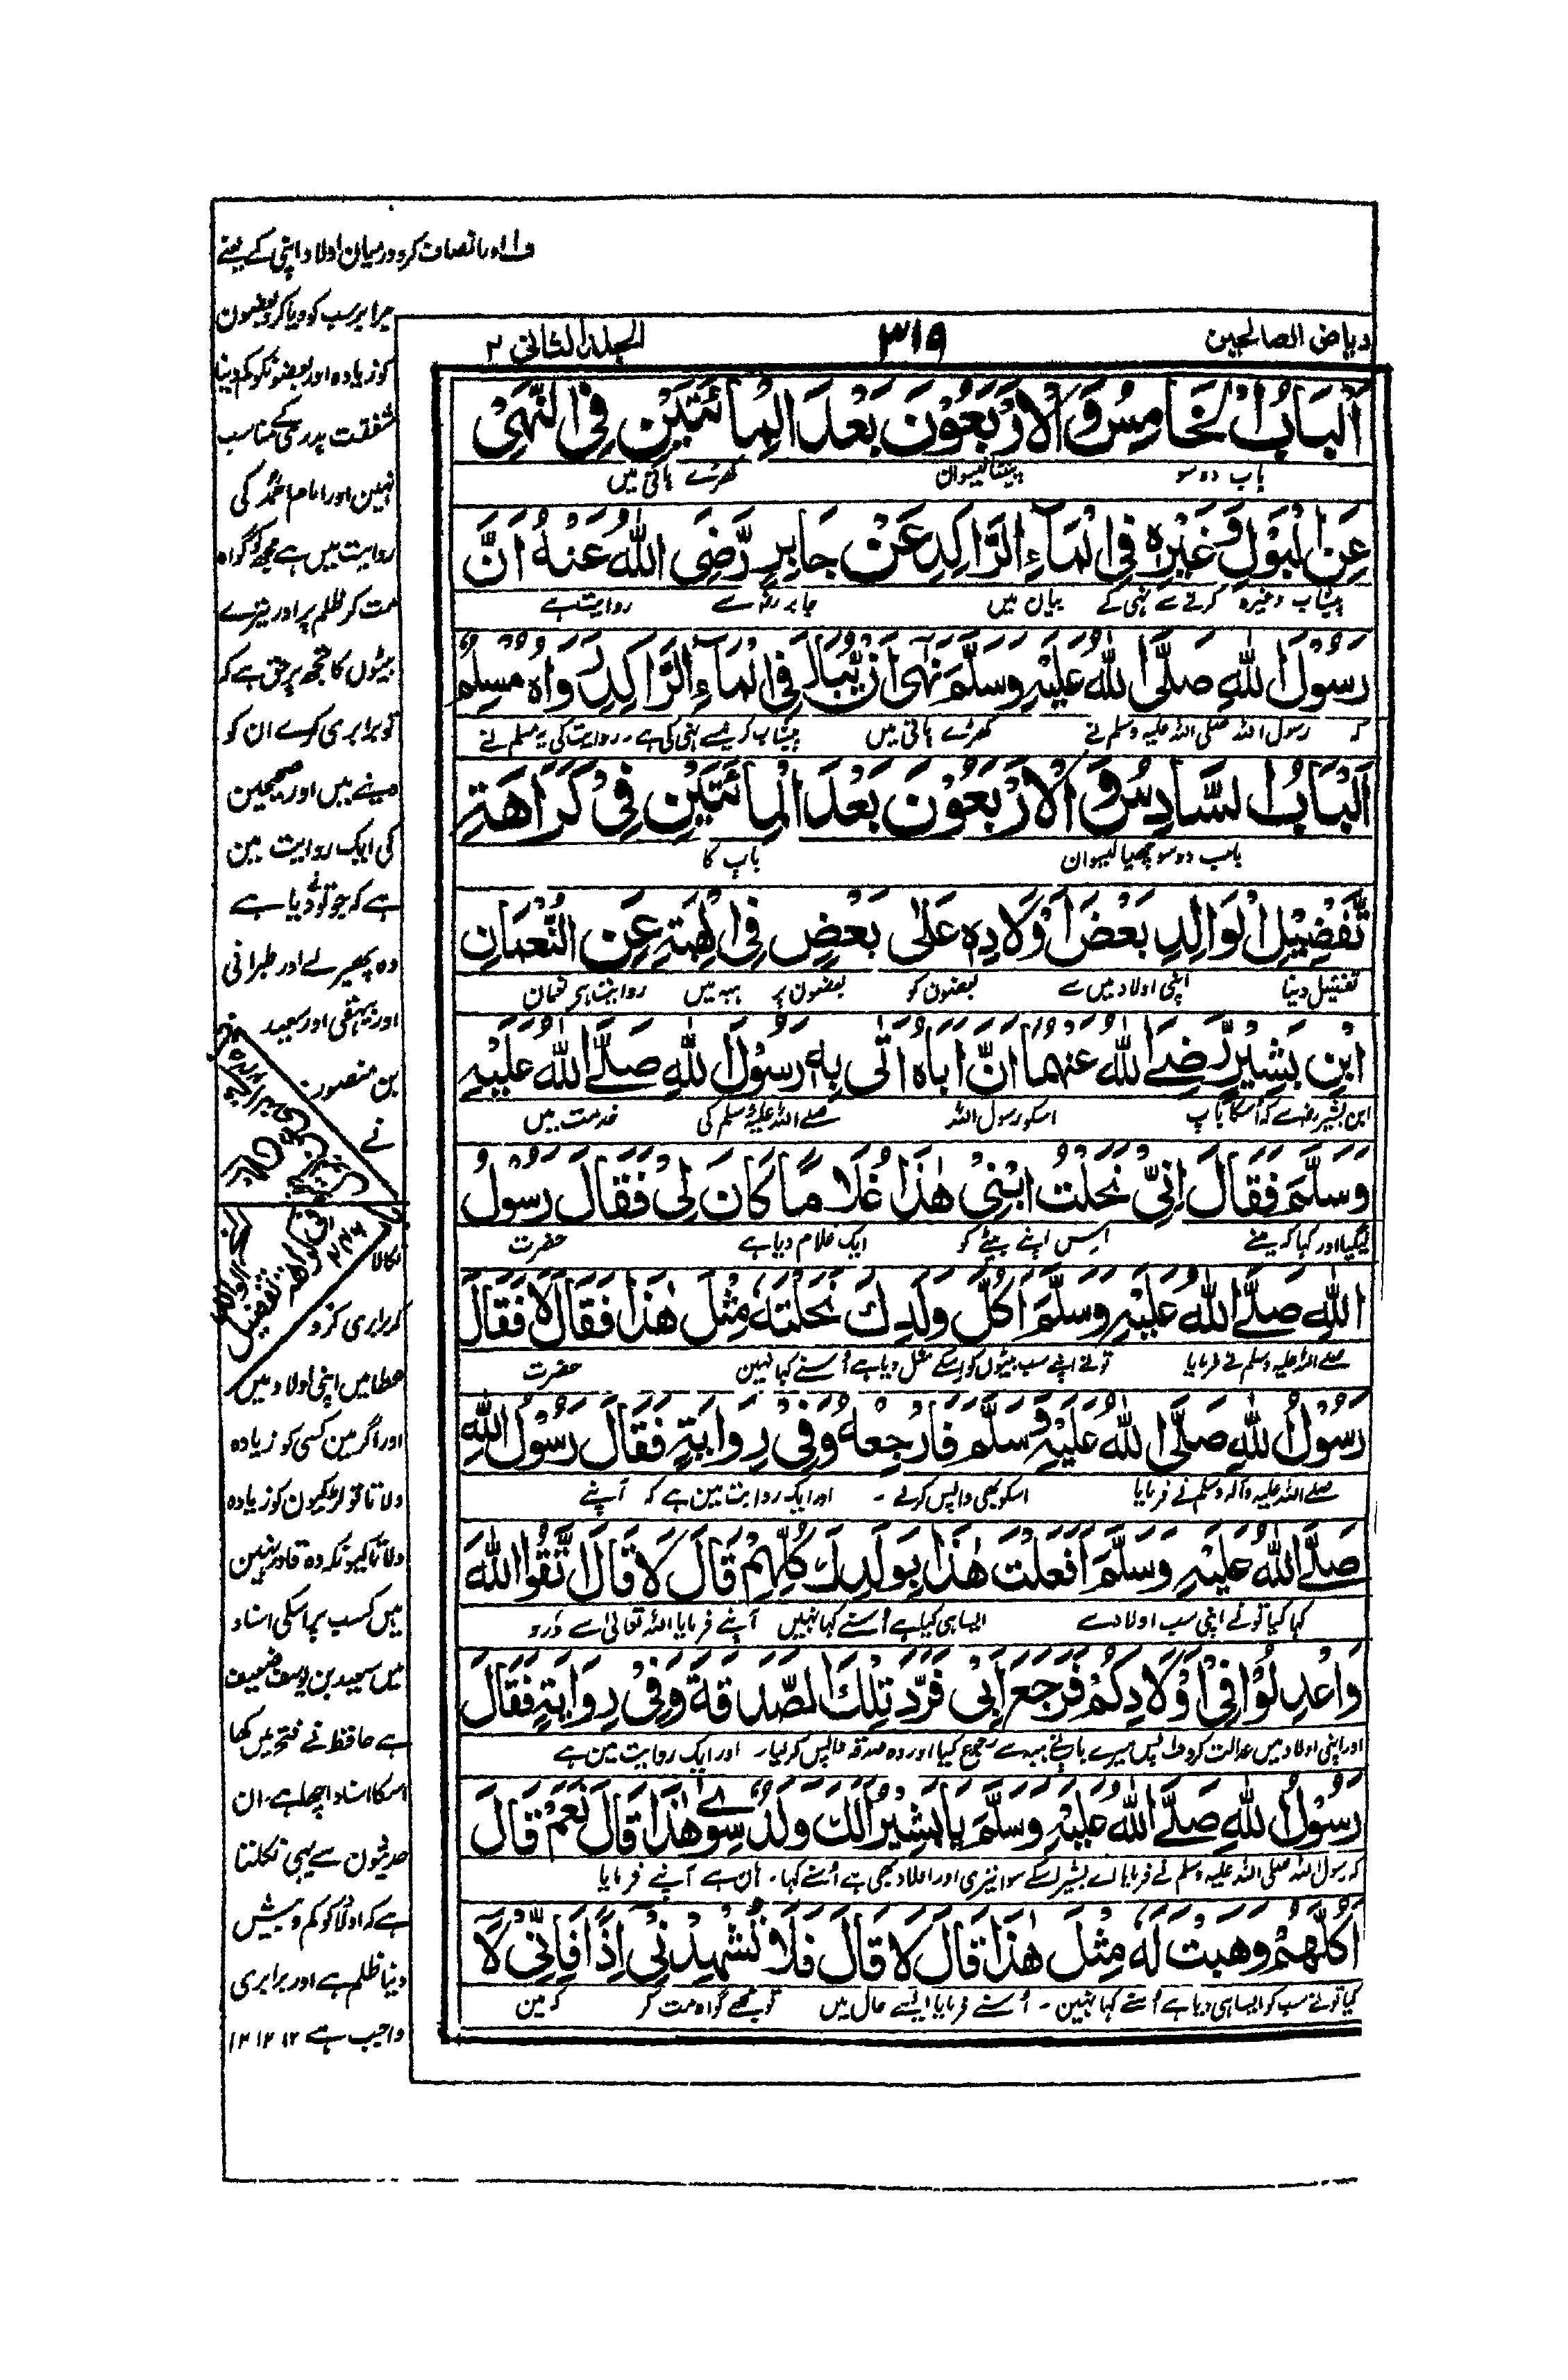 ریاض الصالحین ۳۱۹ الجلد الثانی ۲
اَلْبَابُ الْخَامِسُ وَالْاَرْبَعُوْنَ بَعْدَ الْمِائَتَيْنِ فِی النَّهْیِ
باب دو سو پینتالیسوان کھڑے پانی میں
عَنِ الْبَوْلِ وَغَيْرِهٖ فِی الْمَآءِ الرَّاكِدِ عَنْ جَابِرٍ رَّضِیَ اللّٰهُ عَنْهُ اَنَّ
پیشاب وغیرہ کرنے سے نہی کے بیان میں جابر رضہ سے روایت ہے
رَسُوْلَ اللّٰهِ صَلَّی اللّٰهُ عَلَيْهِ وَسَلَّمَ نَهٰی اَنْ يُّبَالَ فِی الْمَآءِ الرَّاكِدِ رَوَاهُ مُسْلِمٌ
کہ رسول اللہ صلی اللہ علیہ وسلم نے کھڑے پانی میں پیشاب کرنیسے نہی کی ہے ۔ روایت کی یہ مسلم نے
اَلْبَابُ السَّادِسُ وَالْاَرْبَعُوْنَ بَعْدَ الْمِائَتَيْنِ فِیْ كَرَاهَةِ
باب دوسو چھیالیسوان باپ کا
تَفْضِيْلِ الْوَالِدِ بَعْضَ اَوْلَادِهٖ عَلٰی بَعْضٍ فِی الْهِبَةِ عَنِ النُّعْمَانِ
تفضیل دینا اپنی اولاد میں سے بعضون کو بعضون پر ہبہ میں روایت ہے نعمان
ابْنِ بَشِيْرٍ رَّضِیَ اللّٰهُ عَنْهُمَا اَنَّ اَبَاهُ اَتٰی بِهٖ رَسُوْلَ اللّٰهِ صَلَّے اللّٰهُ عَلَيْهِ
ابن بشیر رضہ سے کہ اُسکا باپ اسکو رسول اللہ صلے اللہ علیہ وسلم کی خدمت میں
وَسَلَّمَ فَقَالَ اِنِّیْ نَحَلْتُ ابْنِیْ هٰذَا غُلَامًا كَانَ لِیْ فَقَالَ رَسُوْلُ
لیگیا اور کہا کہ مینے اس اپنے بیٹے کو ایک غلام دیا ہے حضرت
اللّٰهِ صَلَّے اللّٰهُ عَلَيْهِ وَسَلَّمَ اَكُلَّ وَلَدِكَ نَحَلْتَهٗ مِثْلَ هٰذَا فَقَالَ لَا فَقَالَ
صلے اللہ علیہ وسلم نے فرمایا تونے اپنے سب بیٹوں کو اسکے مثل دیا ہے اُسنے کہا نہین حضرت
رَسُوْلُ اللّٰهِ صَلَّی اللّٰهُ عَلَيْهِ وَسَلَّمَ فَارْجِعْهُ وَفِیْ رِوَايَةٍ فَقَالَ رَسُوْلُ اللّٰهِ
صلے اللہ علیہ وآلہ وسلم نے فرمایا اسکو بھی واپس کرلے ۔ اور ایک روایت مین ہے کہ آپنے
صَلَّے اللّٰهُ عَلَيْهِ وَسَلَّمَ اَفَعَلْتَ هٰذَا بِوَلَدِكَ كُلِّهِمْ قَالَ لَا قَالَ اتَّقُوا اللّٰهَ
کہا کیا تونے اپنی سب اولاد سے ایسا ہی کیا ہے اُسنے کہا نہیں آپنے فرمایا اللہ تعالیٰ سے ڈرو
وَاعْدِلُوْا فِیْ اَوْلَادِكُمْ فَرَجَعَ اَبِیْ فَرَدَّ تِلْكَ الصَّدَقَةَ وَفِیْ رِوَايَةٍ فَقَالَ
اور اپنی اولاد میں عدالت کرو ف پس میرے باپنے ہبہ سے رجوع کیا اور وہ صدقہ واپس کرلیا ۔ اور ایک روایت مین ہے
رَسُوْلُ اللّٰهِ صَلَّے اللّٰهُ عَلَيْهِ وَسَلَّمَ يَا بَشِيْرُ اَلَكَ وَلَدٌ سِوٰی هٰذَا قَالَ نَعَمْ قَالَ
کہ رسول اللہ صلی اللہ علیہ وسلم نے فرمایا اے بشیر اسکے سوا تیری اور اولاد بھی ہے اُسنے کہا ۔ ہان ہے آپنے فرمایا
اَكُلَّهُمْ وَهَبْتَ لَهٗ مِثْلَ هٰذَا قَالَ لَا قَالَ فَلَا تُشْهِدْنِیْ اِذًا فَاِنِّیْ لَا
کیا تونے سب کو ایسا ہی دیا ہے اُسنے کہا نہین ۔ اُسنے فرمایا ایسے حال میں تو مجھے گواہ مت کر کہ مین
ف ا اور انصاف کرو درمیان اولاد اپنی کے یعنے
برابر سب کو دیا کرو بعضون
کو زیادہ اور بعضونکو کم دینا
شفقت پدری کے مناسب
نہین اور امام احمد کی
روایت میں ہے مجھ کو گواہ
مت کر ظلم پر اور تیرے
بیٹوں کا تجھ پر حق ہے کہ
تو برابری کرے ان کو
دینے میں اور صحیحین
کی ایک روایت مین
ہے کہ جو تونے دیا ہے
وہ پھیر لے اور طبرانی
اور بیہقی اور سعید
بن منصور
نے
نکالا
کہ برابری کرو
عطا میں اپنی اولاد میں
اور اگر مین کسی کو زیادہ
دلاتا تو لڑکیون کو زیادہ
دلاتا کیونکہ وہ قادر نہین
ہیں کسب پر اسکی اسناد
میں سعید بن یوسف ضعیف
ہے حافظ نے فتح میں کہا
اسکا اسناد اچھا ہے ۔ ان
حدیثون سے یہی نکلتا
ہے کہ اولاد کو کم و بیش
دینا ظلم ہے اور برابری
واجب ہے ۱۲ ۱۲ ۱۲